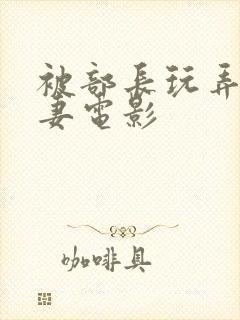 被部長玩弄
妻電影
咖啡具